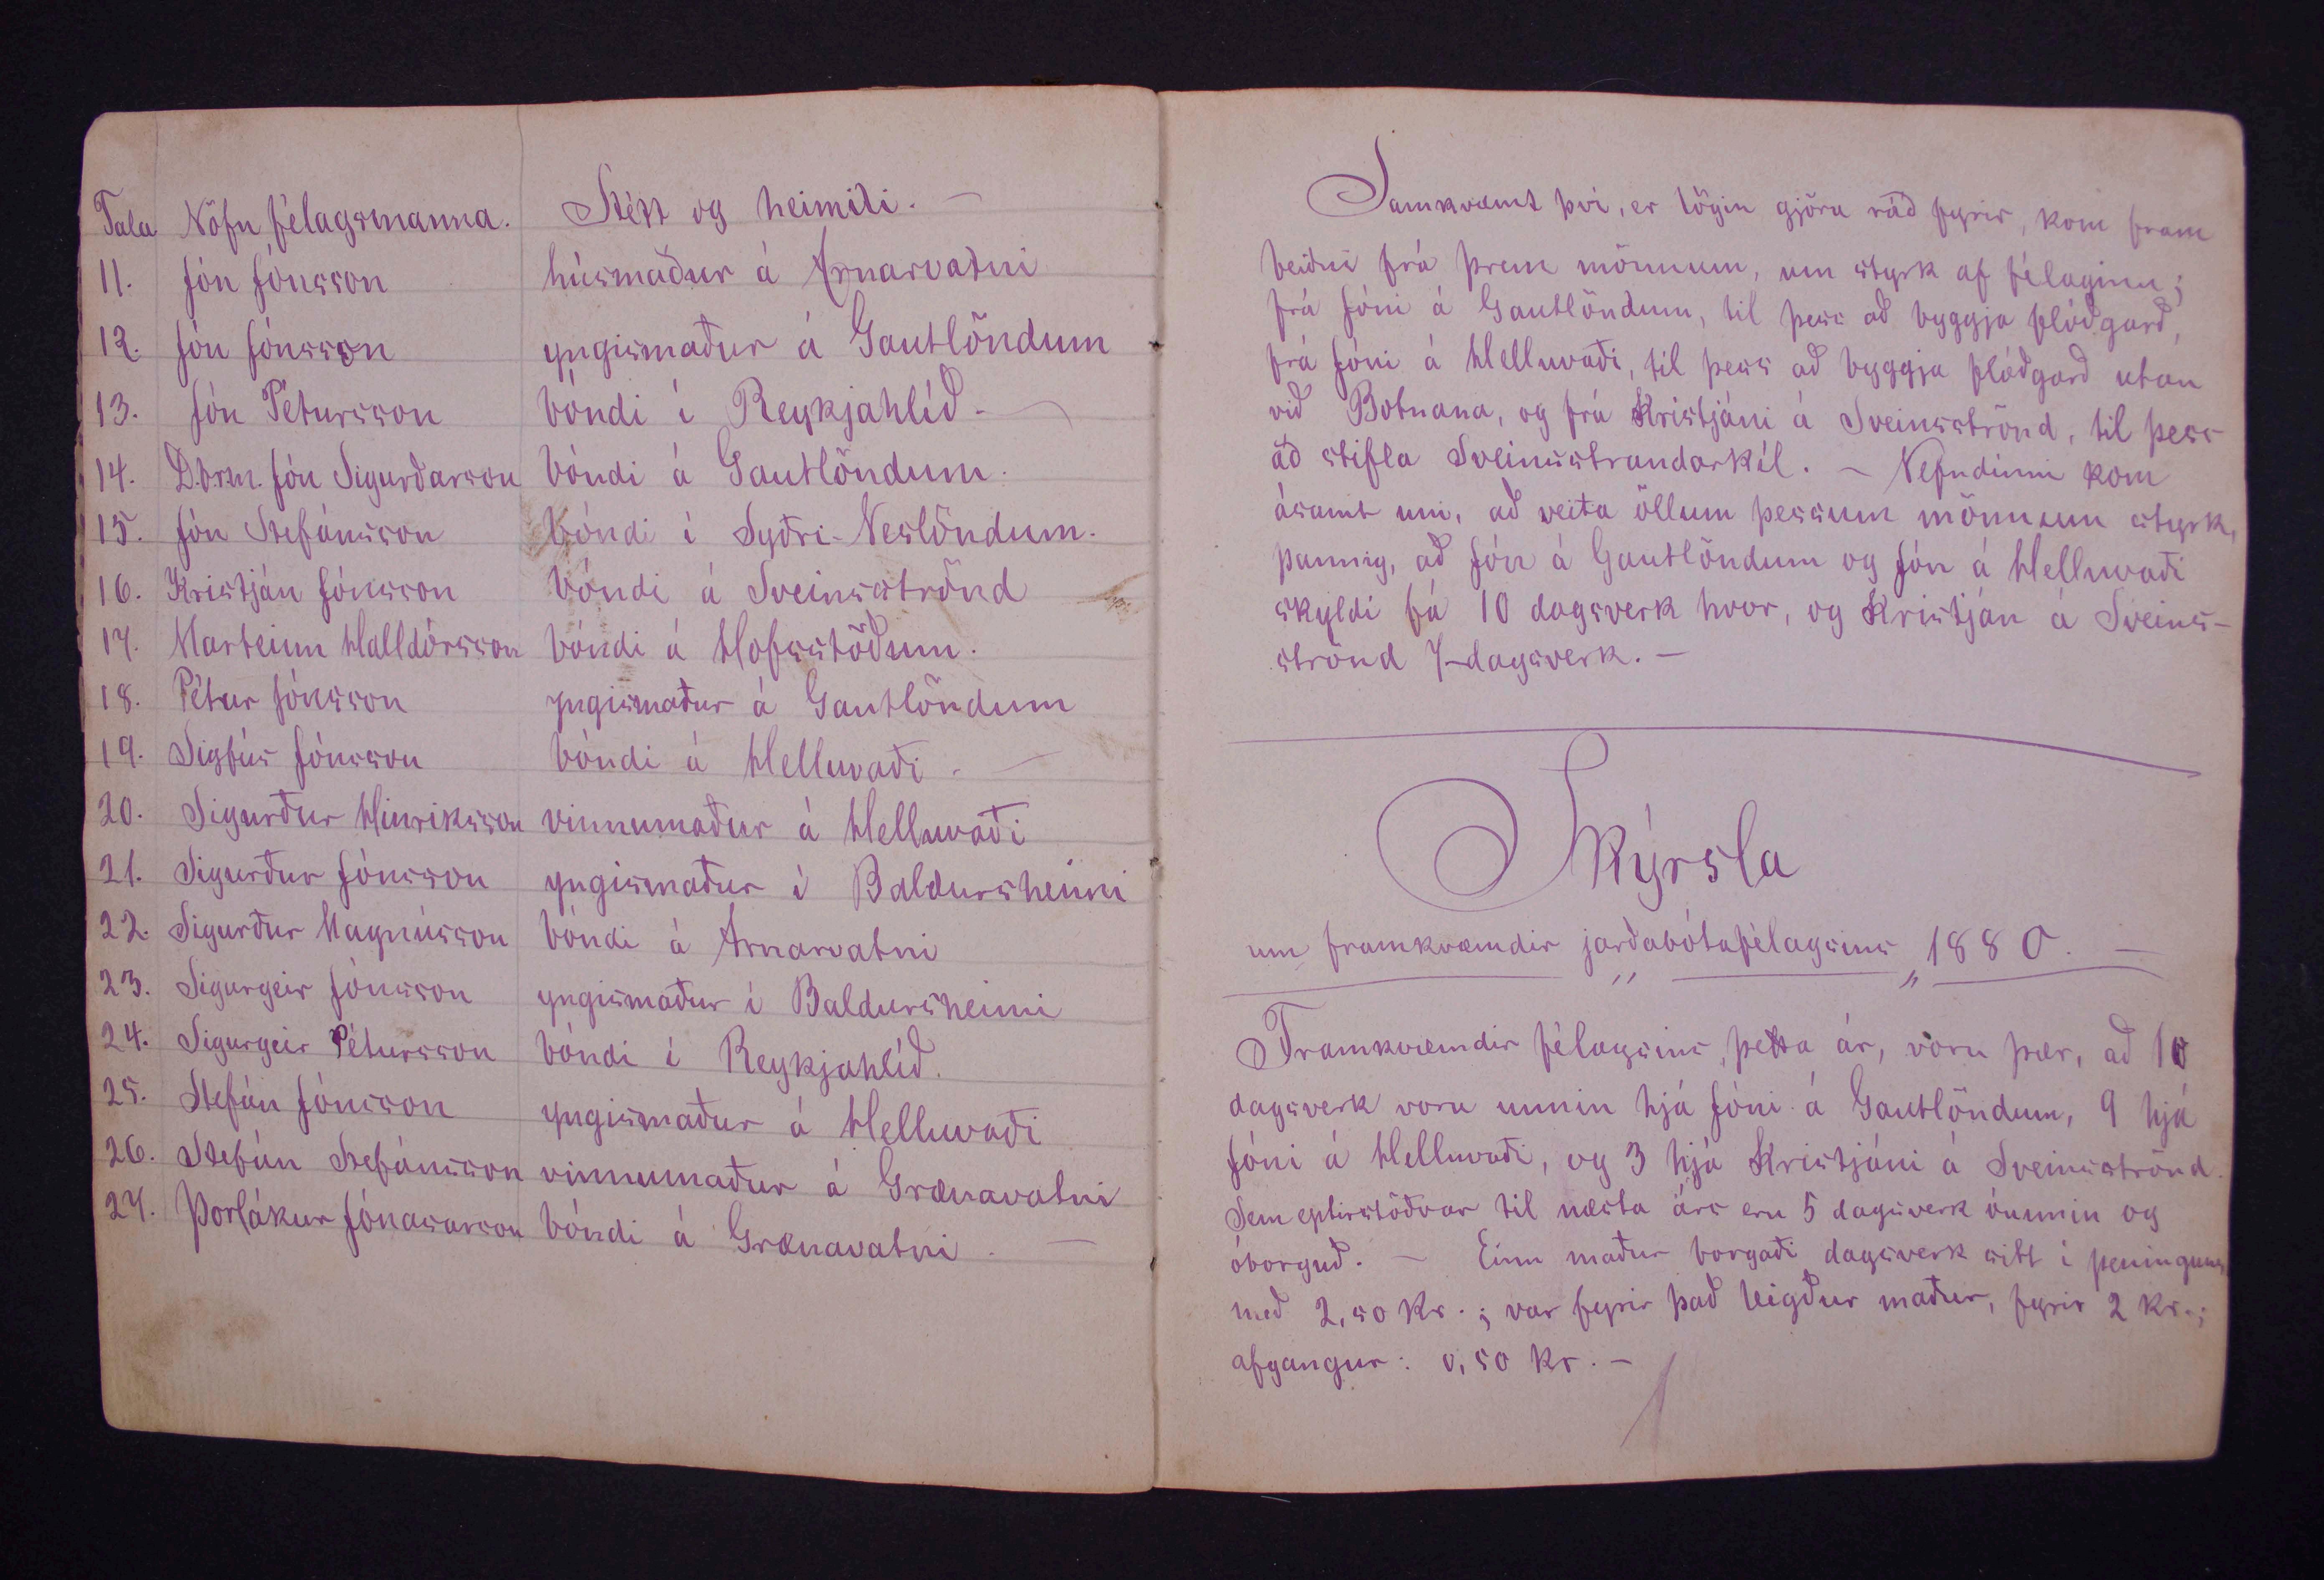 Tala Nöfn félagsmanna. Stétt og heimili. —
11. Jón Jónsson húsmaður á Arnarvatni
12. Jón Jónsson yngismaður á Gautlöndum
13. Jón Pétursson bóndi í Reykjahlíð. —
14. Dbrm. Jón Sigurðarson bóndi á Gautlöndum.
15. Jón Stefánsson bóndi í Syðri-Neslöndum.
16. Kristján Jónsson bóndi á Sveinsströnd
17. Marteinn Halldórsson bóndi á Hofsstöðum.
18. Pétur Jónsson yngismaður á Gautlöndum
19. Sigfús Jónsson bóndi á Helluvaði. —
20. Sigurður Hinriksson vinnumaður á Helluvaði
21. Sigurður Jónsson yngismaður í Baldursheimi
22. Sigurður Magnússon bóndi á Arnarvatni
23. Sigurgeir Jónsson yngismaður í Baldursheimi
24. Sigurgeir Pétursson bóndi í Reykjahlíð.
25. Stefán Jónsson yngismaður á Helluvaði
26. Stefán Stefánsson vinnumaður á Grænavatni
27. Þorlákur Jónasarson bóndi á Grænavatni. —
Samkvæmt því, er lögin gjöra ráð fyrir, kom fram
beiðni frá þrem mönnum, um styrk af félaginu;
frá Jóni á Gautlöndum, til þess að byggja flóðgarð,
frá Jóni á Helluvaði, til þess að byggja flóðgarð utan
við Botnana, og frá Kristjáni á Sveinsströnd, til þess
að stífla Sveinsstrandarkíl. — Nefndinni kom
ásamt um, að veita öllum þessum mönnum styrk,
þannig, að Jón á Gautlöndum og Jón á Helluvaði
skyldi fá 10 dagsverk hvor, og Kristján á Sveins-
strönd 7 dagsverk. —
Skýrsla
um framkvæmdir jarðabótafélagsins 1880. —
Framkvæmdir félagsins, þetta ár, voru þær, að 10
dagsverk voru unnin hjá Jóni á Gautlöndum, 9 hjá
Jóni á Helluvaði, og 3 hjá Kristjáni á Sveinsströnd.
Sem eptirstöðvar til næsta árs eru 5 dagsverk óunnin og
óborguð. — Einn maður borgaði dagsverk sitt í peningum
með 2,50 Kr.; var fyrir það leigður maður, fyrir 2 Kr.;
afgangur: 0,50 Kr. —